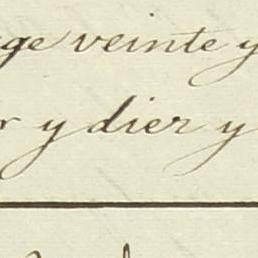 ge veinte y
r y dier y